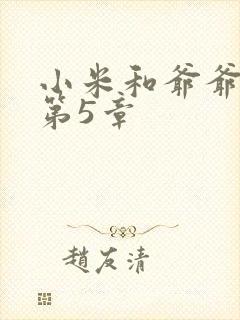 小米和爷爷
第5章
趙友清